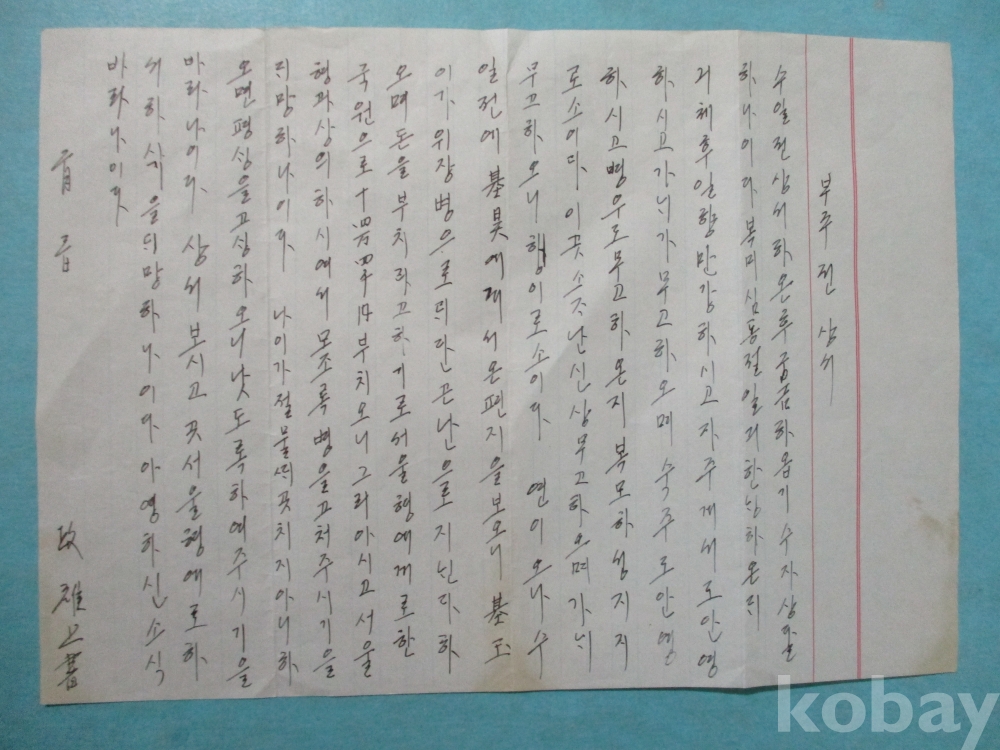 부주전 상서
수일전 상서하온후 궁금하옵기 수자상달
하나이다 복미심동절일기한닝하온듸
긔체후일향만강하시고 자주게서도안영
하시고 가늬가무고하오며 숙주도안영
하시고 병우도무고하온지 복모하성지지
로소이다 이곳소식난신상무고하오며 가늬
무고하오니 행이로소이다 연이오나 수
일전에 基昊에게서온편지을보오니 基玉
이가위장병으로 듸단곤난으로지닌다하
오며 돈을부치라고하기로 서울형에게로한
국원으로 十四万四千 부치오니 그리아시고 서울
형과상의하시여서 모조록병을고처주시기을
듸망하나이다 나이가절물 곳치지아니하
오면평싱을고싱하오니 낫도록하여주시기을
바라나이다 상서보시고 곳서울형에로하
서하시을듸망하나이다 아영하신소식
바라나이다
政雄 上書
kobay